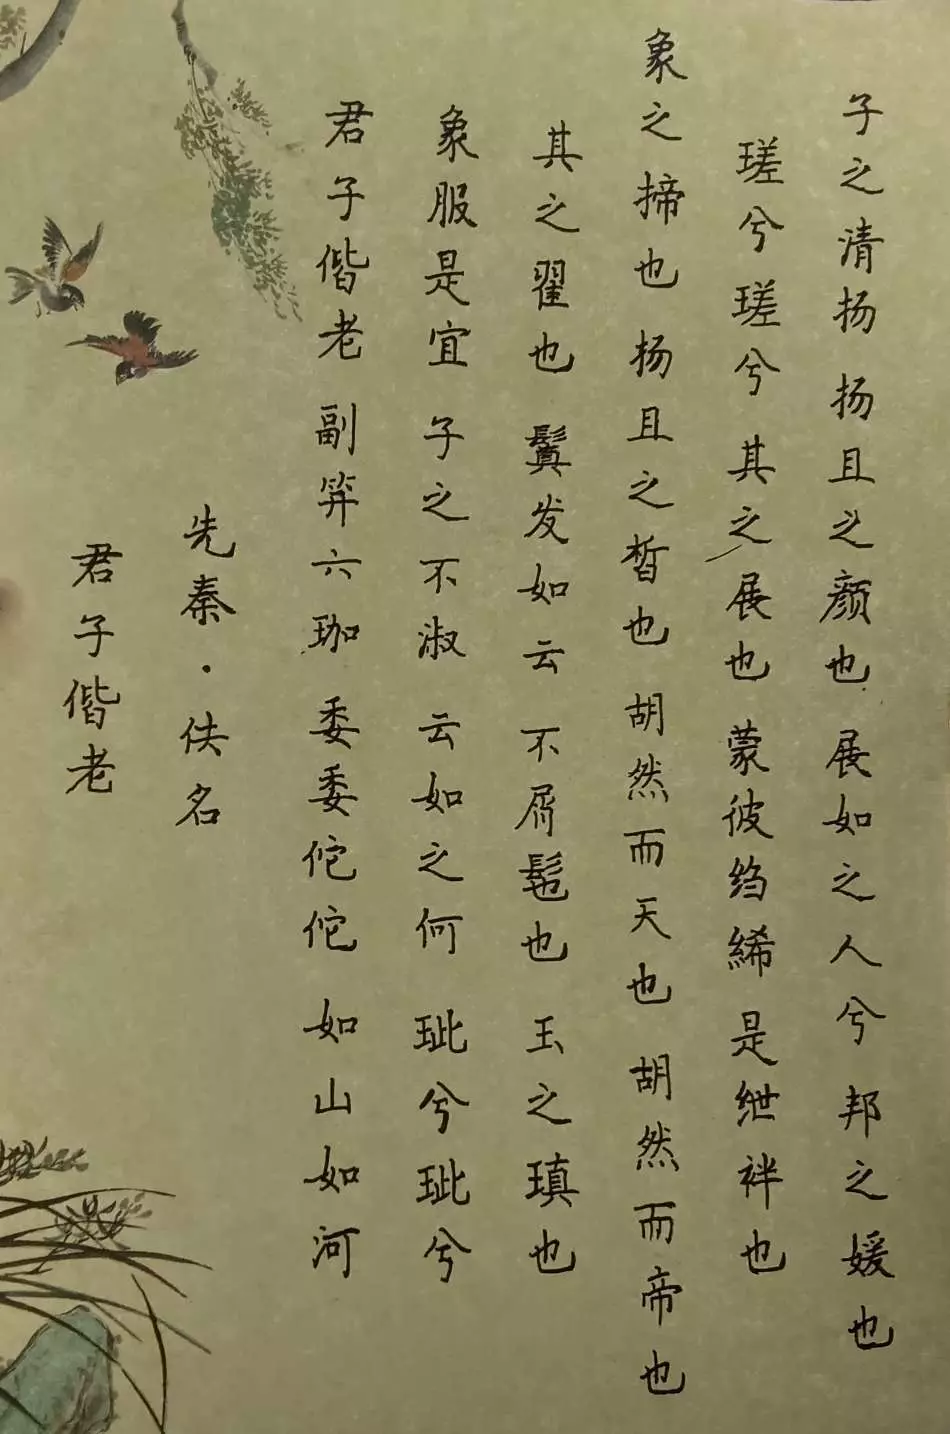 君子偕老
先秦·佚名
君子偕老 副笄六珈 委委佗佗 如山如河
象服是宜 子之不淑 云如之何 玼兮玼兮
其之翟也 鬒发如云 不屑髢也 玉之瑱也
象之揥也 扬且之皙也 胡然而天也 胡然而帝也
瑳兮瑳兮 其之展也 蒙彼绉絺 是绁袢也
子之清扬 扬且之颜也 展如之人兮 邦之媛也